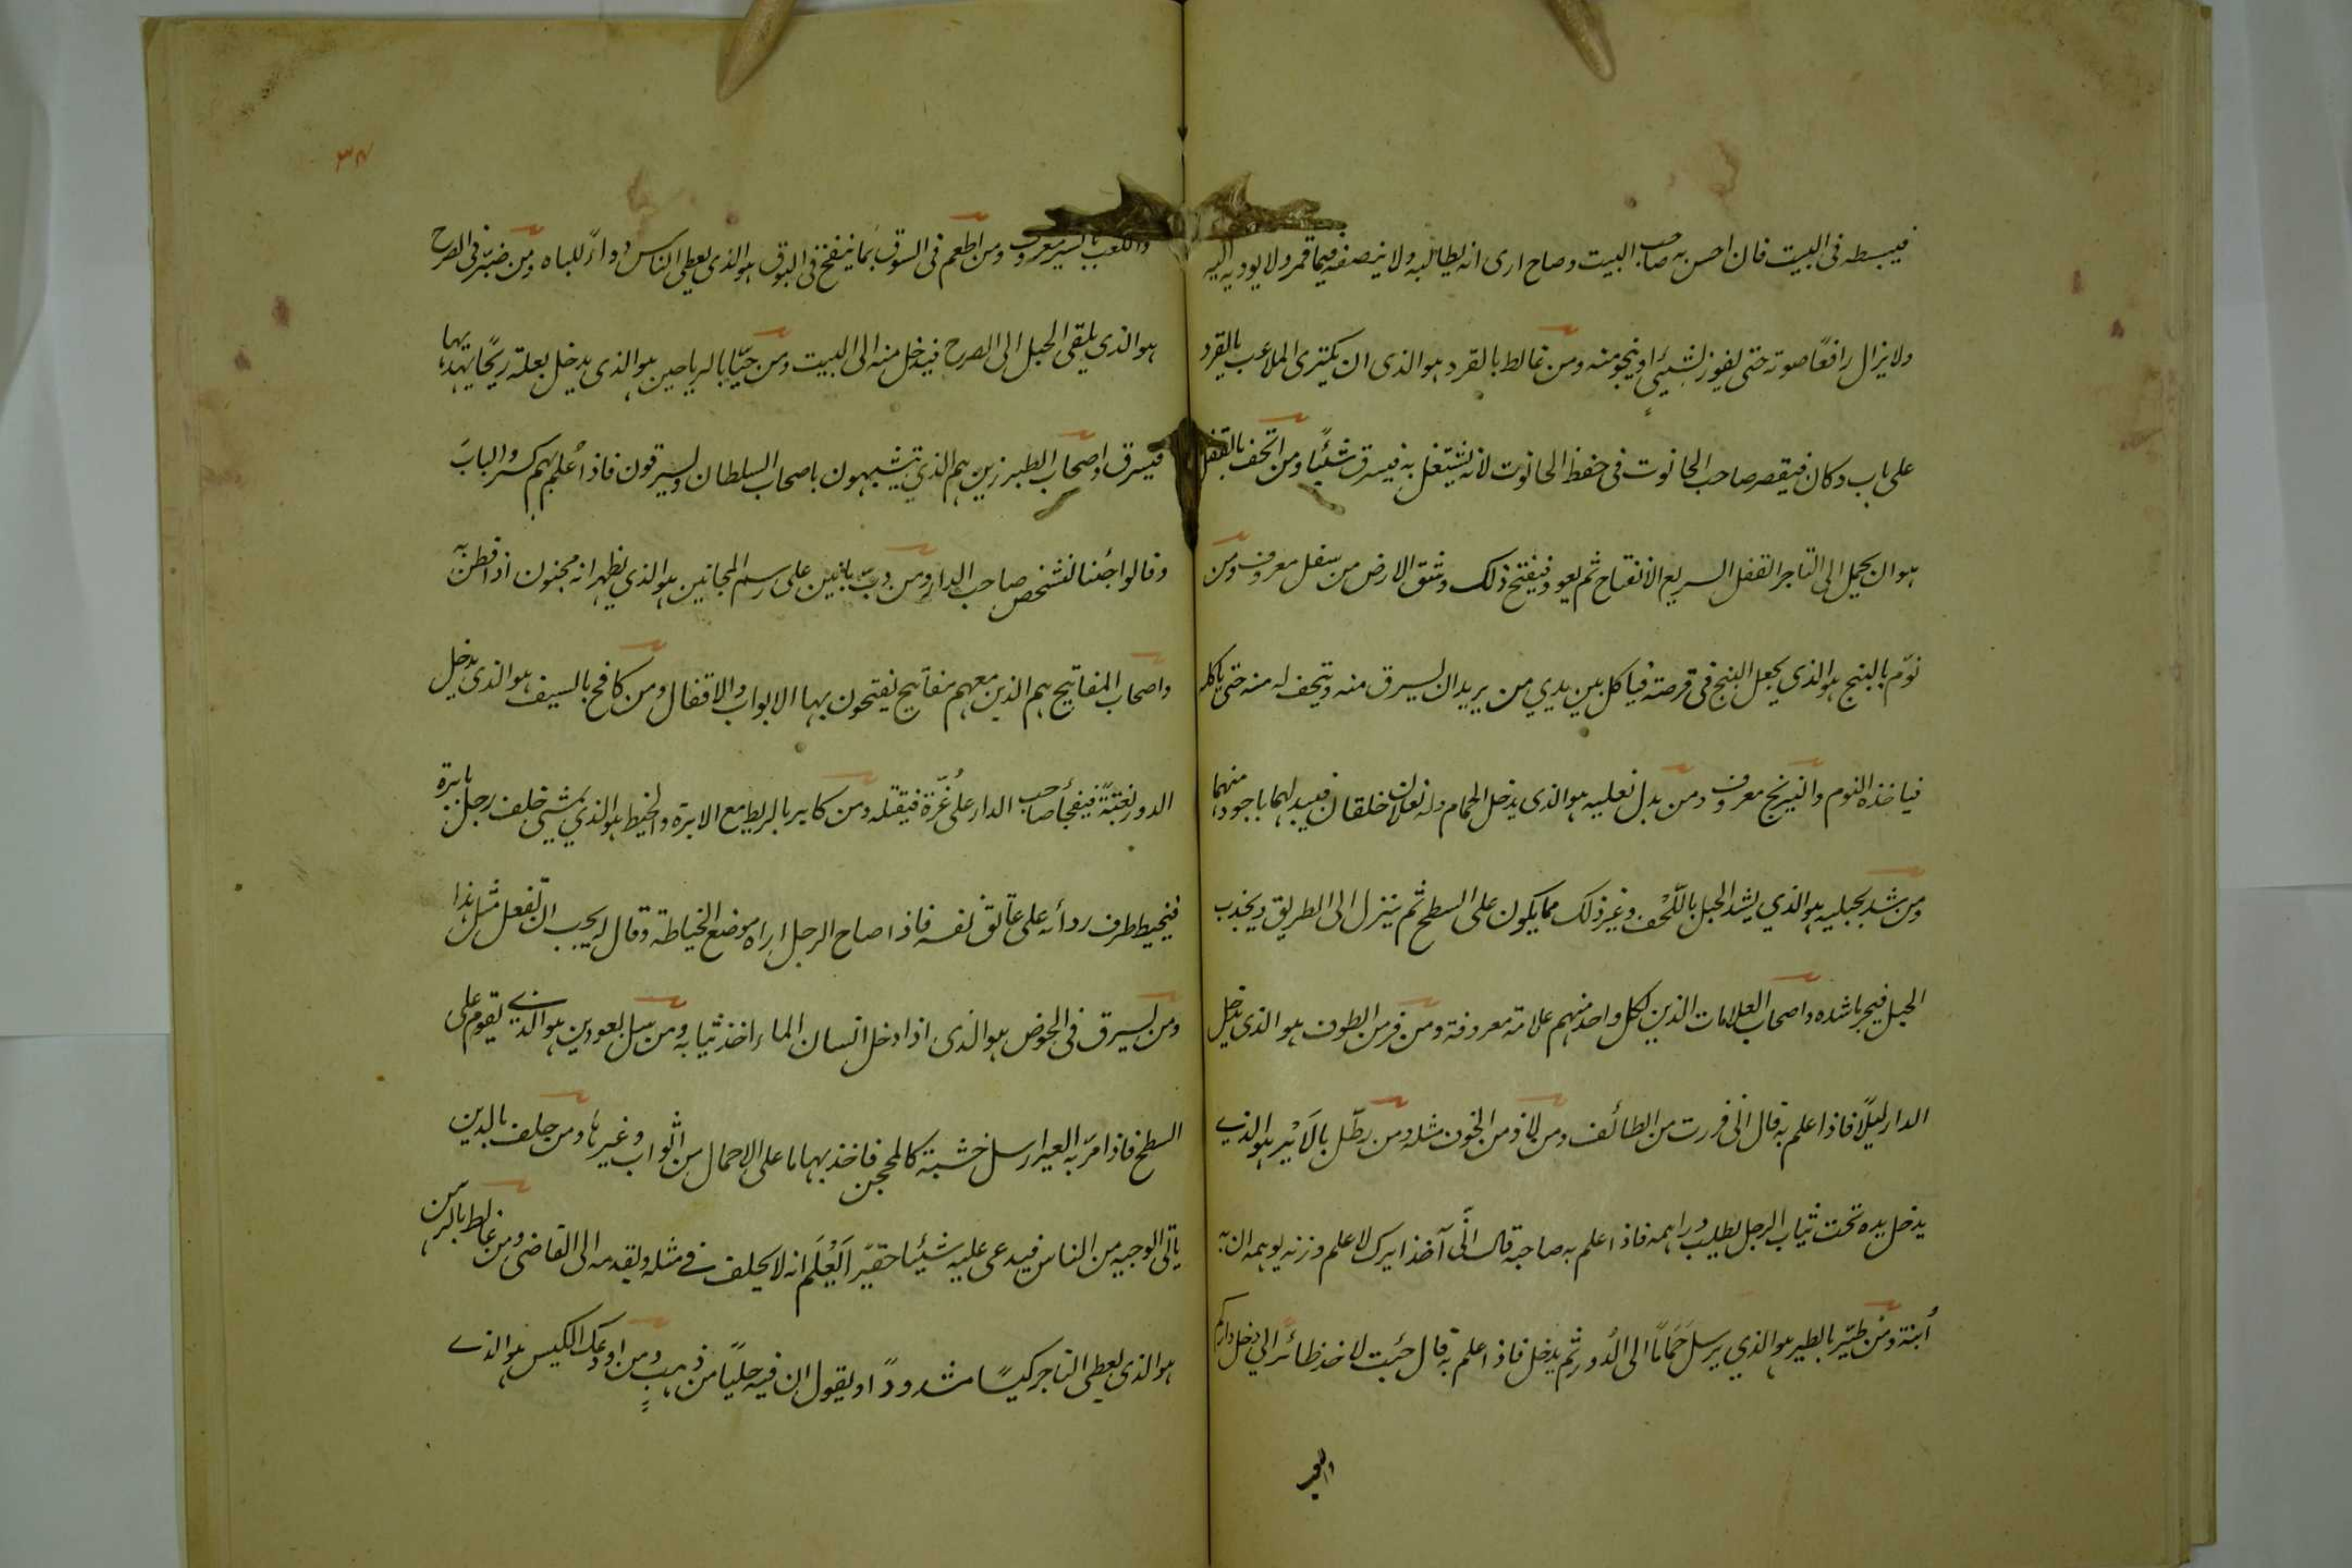 فيبسطه فى البيت فان احسن به صاحب البيت وصاح ارى انه يطالبه ولا ينصفه فيما قمر ولا يوديه اليه
ولا يزال رافعًا صوته حتى يفوز بشيئى او ينجو منه ومن غالط بالقرد هو الذى ان يكترى الملاعب بالقرد
على باب دكان فيقصر صاحب الحانوت فى حفظ الحانوت لانه يشتغل به فيسرق شيئًا ومن اتحف بالقفل
هو ان يحمل الى التاجر القفل السريع الانفتاح ثم يعود فيفتح ذلك وشق الارض من سفل معروف ومن
نوّم بالبنج هو الذى يجعل البنج فى قرصته فياكل بين يدي من يريد ان يسرق منه ويتحف له منه حتى ياكله
فياخذه النوم والنيرنج معروف ومن بدل نعليه هو الذى يدخل الحمام وله نعلان خلقان فيبدلهما باجود منهما
ومن شد بحبليه هو الذي يشد الحبل باللّحف وغير ذلك مما يكون على السطح ثم ينزل الى الطريق ويجذب
الحبل فيجر ما شده واصحاب العلامات الذين لكل واحد منهم علامة معروفة ومن فر من الطوف هو الذى يدخل
الدار ليلًا فاذا علم به قال انى فررت من الطائف ومن لاذ من الخون مثله ومن بطّل بالاَيْر هو الذي
يدخل يده تحت ثياب الرجل يطلب دراهمه فاذا علم به صاحبه قال انّى آخذ ايرك لاعلم وزنه يوهمه ان به
أبنة ومن طيّر بالطير هو الذي يرسل حَمَامًا الى الدُور ثم يدخل فاذا علم به قال جئت لاخذ طائرًا لي دخل داركم
واللعب
واللعب بالسير معروف ومن اطعم فى السوق بما ينفخ فى البوق هو الذى يعطى الناس دواءً للباه ومن ضبّر فى الصرح
هو الذى يلقى الحبل الى الصرح فيدخل منه الى البيت ومن حيّا بالرياحين هو الذى يدخل بعلة ريحًا يتهد بها
فيسرق واصحاب الطبرزين هم الذي يتشبهون باصحاب السلطان ويسرقون فاذا أُعلم بهم كسروا الباب
وقالوا جئنا لشخص صاحب الدار ومن دبّ بانين على رسم المجانين هو الذي يظهر انه مجنون اذا فطن به
واصحاب المفاتيح هم الذين معهم مفاتيح يفتحون بها الابواب والاقفال ومن كافح بالسيف هو الذى يدخل
الدور بغتةً فيفجأ صاحب الدار على غُرّة فيقتله ومن كابر بالربط مع الابرة والخيط هو الذي يمشى خلف رجل بابرة
فيخيط طرف ردأئه على عاتق نفسه فاذا صاح الرجل اراه موضع الخياطة وقال له يجب ان تفعل مثل هذا
ومن يسرق فى الحوض هو الذى اذا دخل انسان الماء اخذ ثيابه ومن سل بعودين هو الذي يقوم على
السطح فاذا مرّ به العير ارسل خشبة كالمحجن فاخذ بها ما على الاحمال من اثواب وغيرها ومن حلف بالدين
ياتى الوجيه من الناس فيدعى عليه شيئًا حقيرًا لعُلم انه لا يحلف في مثله ويقدمه الى القاضى ومن غالط بالرهن
هو الذى يعطى التاجر كيسًا مشدودًا ويقول ان فيه حليًا من ذهب ومن اودعك الكيس هو الذي